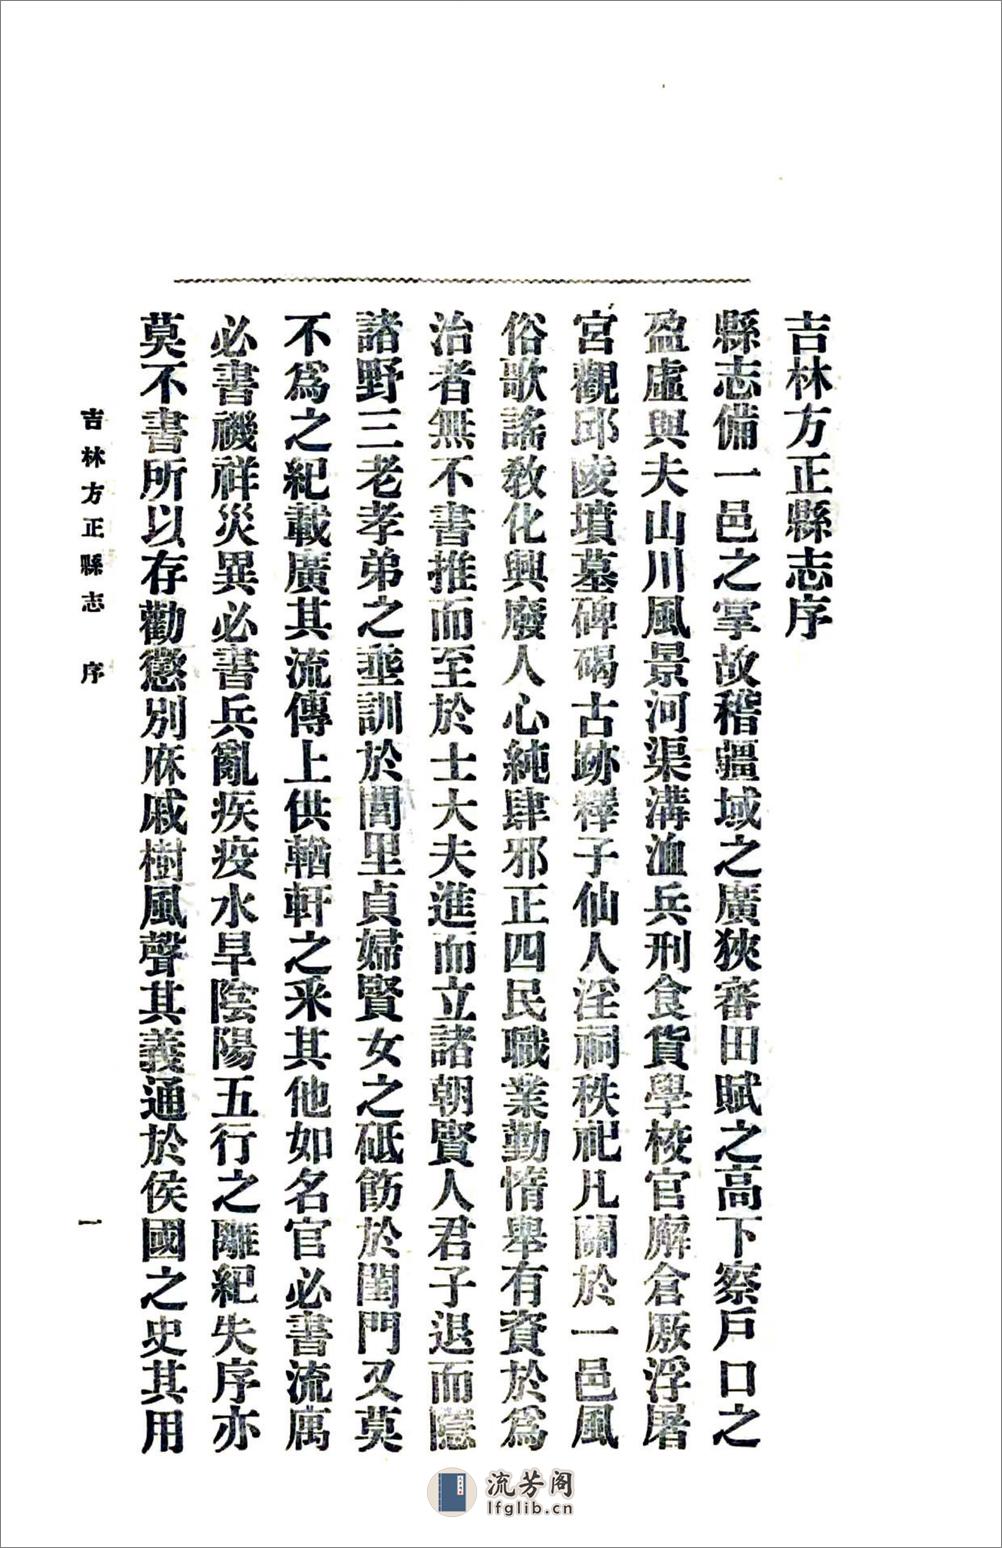 吉林方正縣志序
縣志備一邑之掌故稽疆域之廣狹審田賦之高下察戶口之
盈虛與夫山川風景河渠溝洫兵刑食貨學校官廨倉厫浮屠
宮觀邱陵墳墓碑碣古跡釋子仙人淫祠秩祀凡關於一邑風
俗歌謠敎化興廢人心純肆邪正四民職業勤惰舉有資於爲
治者無不書推而至於士大夫進而立諸朝賢人君子退而隱
諸野三老孝弟之埀訓於閭里貞婦賢女之砥飭於閨門又莫
不爲之紀載廣其流傳上供輶軒之釆其他如名官必書流寓
必書禨祥災異必書兵亂疾疫水旱陰陽五行之離紀失序亦
莫不書所以存勸懲別庥戚樹風聲其義通於侯國之史其用
吉林方正縣志 序
一
流芳阁
lfglib.cn